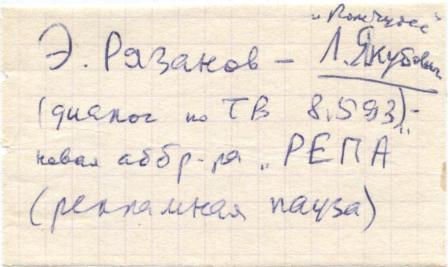 Э. Рязанов – Л. Якубович
(диалог по ТВ 8.5.93) –
новая аббр-ра „РЕПА“
(рекламная пауза)